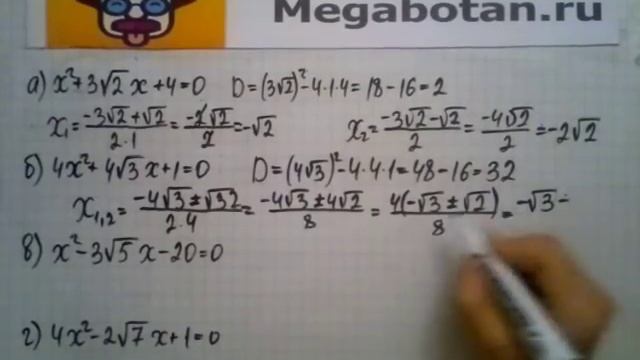 Megabotan.ru
а) x²+3√2 x+4=0 D=(3√2)²-4·1·4=18-16=2
x₁=(-3√2+√2)/(2·1)=(-2√2)/2=-√2 x₂=(-3√2-√2)/2=(-4√2)/2=-2√2
б) 4x²+4√3 x+1=0 D=(4√3)²-4·4·1=48-16=32
x₁,₂=(-4√3±√32)/(2·4)=(-4√3±4√2)/8=(4(-√3±√2))/8=-√3-
в) x²-3√5 x-20=0
г) 4x²-2√7 x+1=0